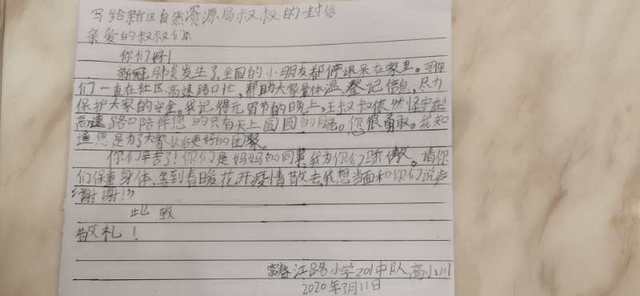 写给新区自然资源局叔叔的一封信
亲爱的叔叔们:
你们好!
新冠肺炎发生了,全国的小朋友都停课呆在家里。可你
们一直在社区、高速路口忙,帮助大家量体温、登记信息,尽力
保护大家的安全。我记得元宵节的晚上,王叔叔依然保守在
高速路口陪伴您的只有天上圆圆的月亮。您很勇敢。我知
道您是为了大家以后更好的团聚。
你们辛苦了!你们是妈妈的同事,我为你们骄傲。请你
们保重身体,等到春暖花开疫情散去我想当面和你们说声
“谢谢!”
此致
敬礼!
江路小学201中队 高小川
2020年3月11日